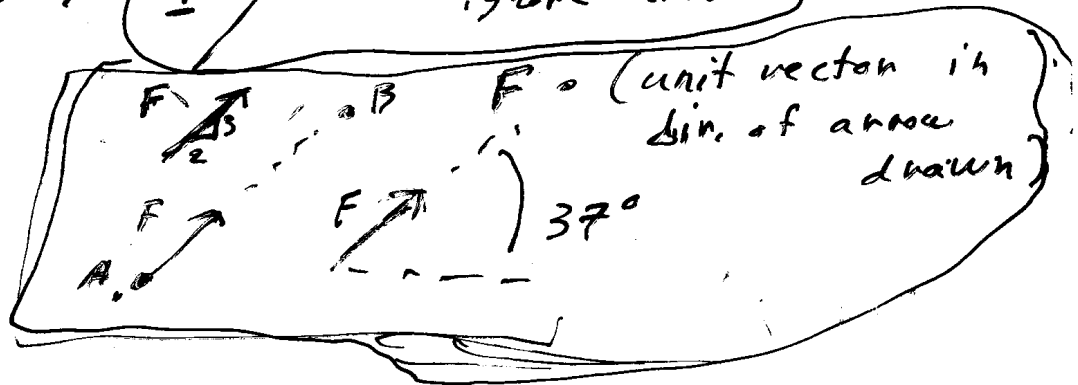 ignore
F 3 2
B
F • (unit vector in
dir. of arrow
drawn)
F
F
37°
A